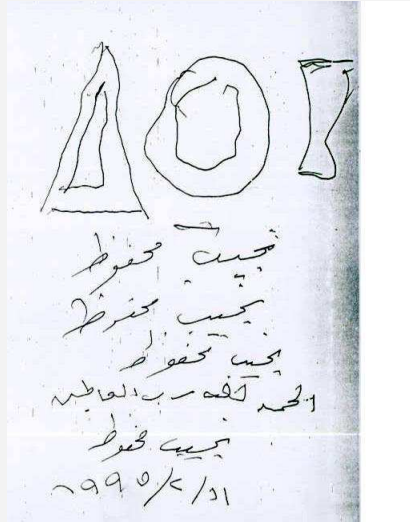 نجيب محفوظ
نجيب محفوظ
نجيب محفوظ
الحمد لله رب العالمين
نجيب محفوظ
١٩٩٥/٢/